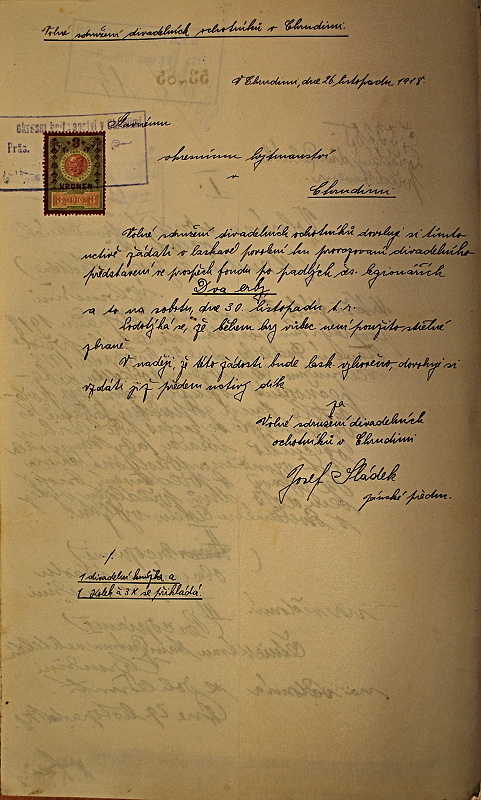 Volné sdružení divadelních ochotníků v Chrudimi.
53085
V Chrudimi, dne 26. listopadu 1918
okresní hejtmanství v Chrudimi
Präs.
Slavnému
3
KRONEN
okresnímu hejtmanství
v
Chrudimi
Volné sdružení divadelních ochotníků dovoluje si tímto
uctivě žádati o laskavé povolení ku provozování divadelního
představení ve prospěch fondu po padlých čs. legionářích
Dva erby
a to na sobotu, dne 30. listopadu t. r.
Podotýká se, že během hry vůbec není použito střelné
zbraně.
V naději, že této žádosti bude lask. vyhověno, dovoluji si
vzdáti již předem uctivý dík
za
Volné sdružení divadelních
ochotníků v Chrudimi
Josef Sládek
předn.
1 divadelní knížka a
1 kolek à 3 K se přikládá